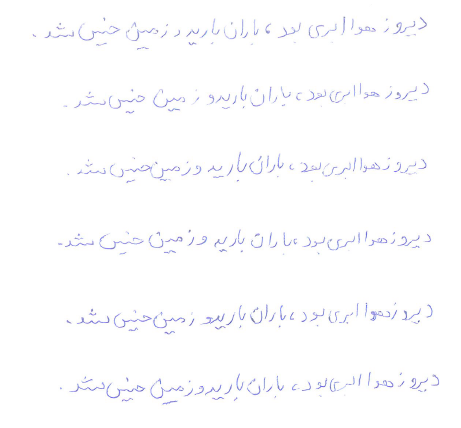 دیروز هوا ابری بود ، باران بارید و زمین خیس شد .
دیروز هوا ابری بود ، باران بارید و زمین خیس شد .
دیروز هوا ابری بود ، باران بارید و زمین خیس شد .
دیروز هوا ابری بود ، باران بارید و زمین خیس شد .
دیروز هوا ابری بود ، باران بارید و زمین خیس شد .
دیروز هوا ابری بود ، باران بارید و زمین خیس شد .